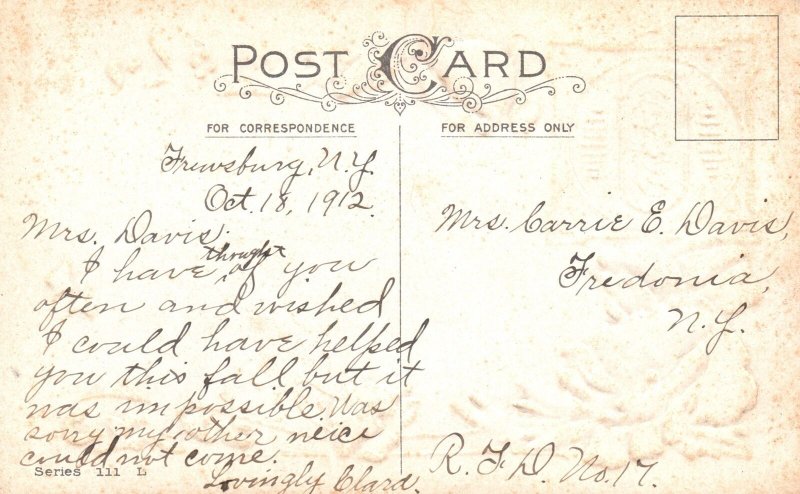 POST CARD
FOR CORRESPONDENCE
FOR ADDRESS ONLY
Frewsburg, N.Y.
Oct. 18, 1912.
Mrs. Davis:
I have thought of you
often and wished
I could have helped
you this fall but it
was impossible. Was
sorry my other neice
could not come.
Lovingly Clara.
Series 111 L
Mrs. Carrie E. Davis,
Fredonia,
N.Y.
R.F.D. No. 17.